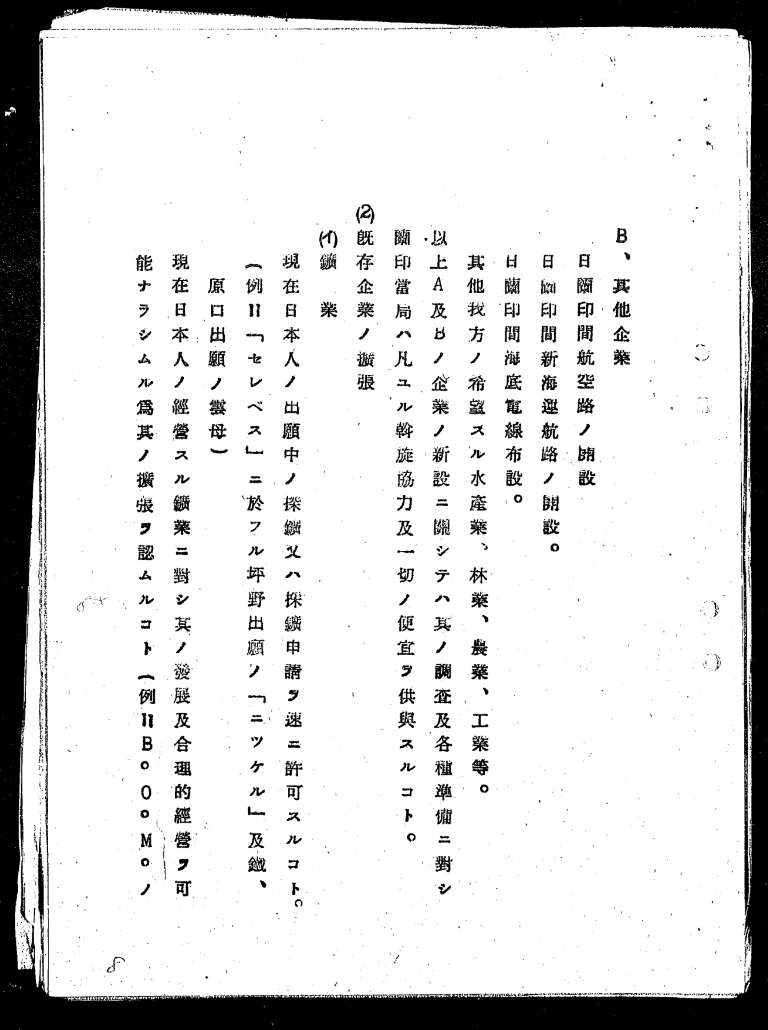 B、其他企業
日蘭印間航空路ノ開設
日蘭印間新海運航路ノ開設。
日蘭印間海底電線布設。
其他我方ノ希望スル水產業、林業、農業、工業等。
以上A及Bノ企業ノ新設ニ關シテハ其ノ調查及各種準備ニ對シ
蘭印當局ハ凡ユル斡旋協力及一切ノ便宜ヲ供與スルコト。
(2)既存企業ノ擴張
(イ)鑛業
現在日本人ノ出願中ノ採鑛又ハ探鑛申請ヲ速ニ許可スルコト。
(例〓「セレベス」ニ於フル坪野出願ノ「ニツケル」及鐵、
原口出願ノ雲母)
現在日本人ノ經營スル鑛業ニ對シ其ノ發展及合理的經營ヲ可
能ナラシムル爲其ノ擴張ヲ認ムルコト(例〓B。O。M。ノ
8